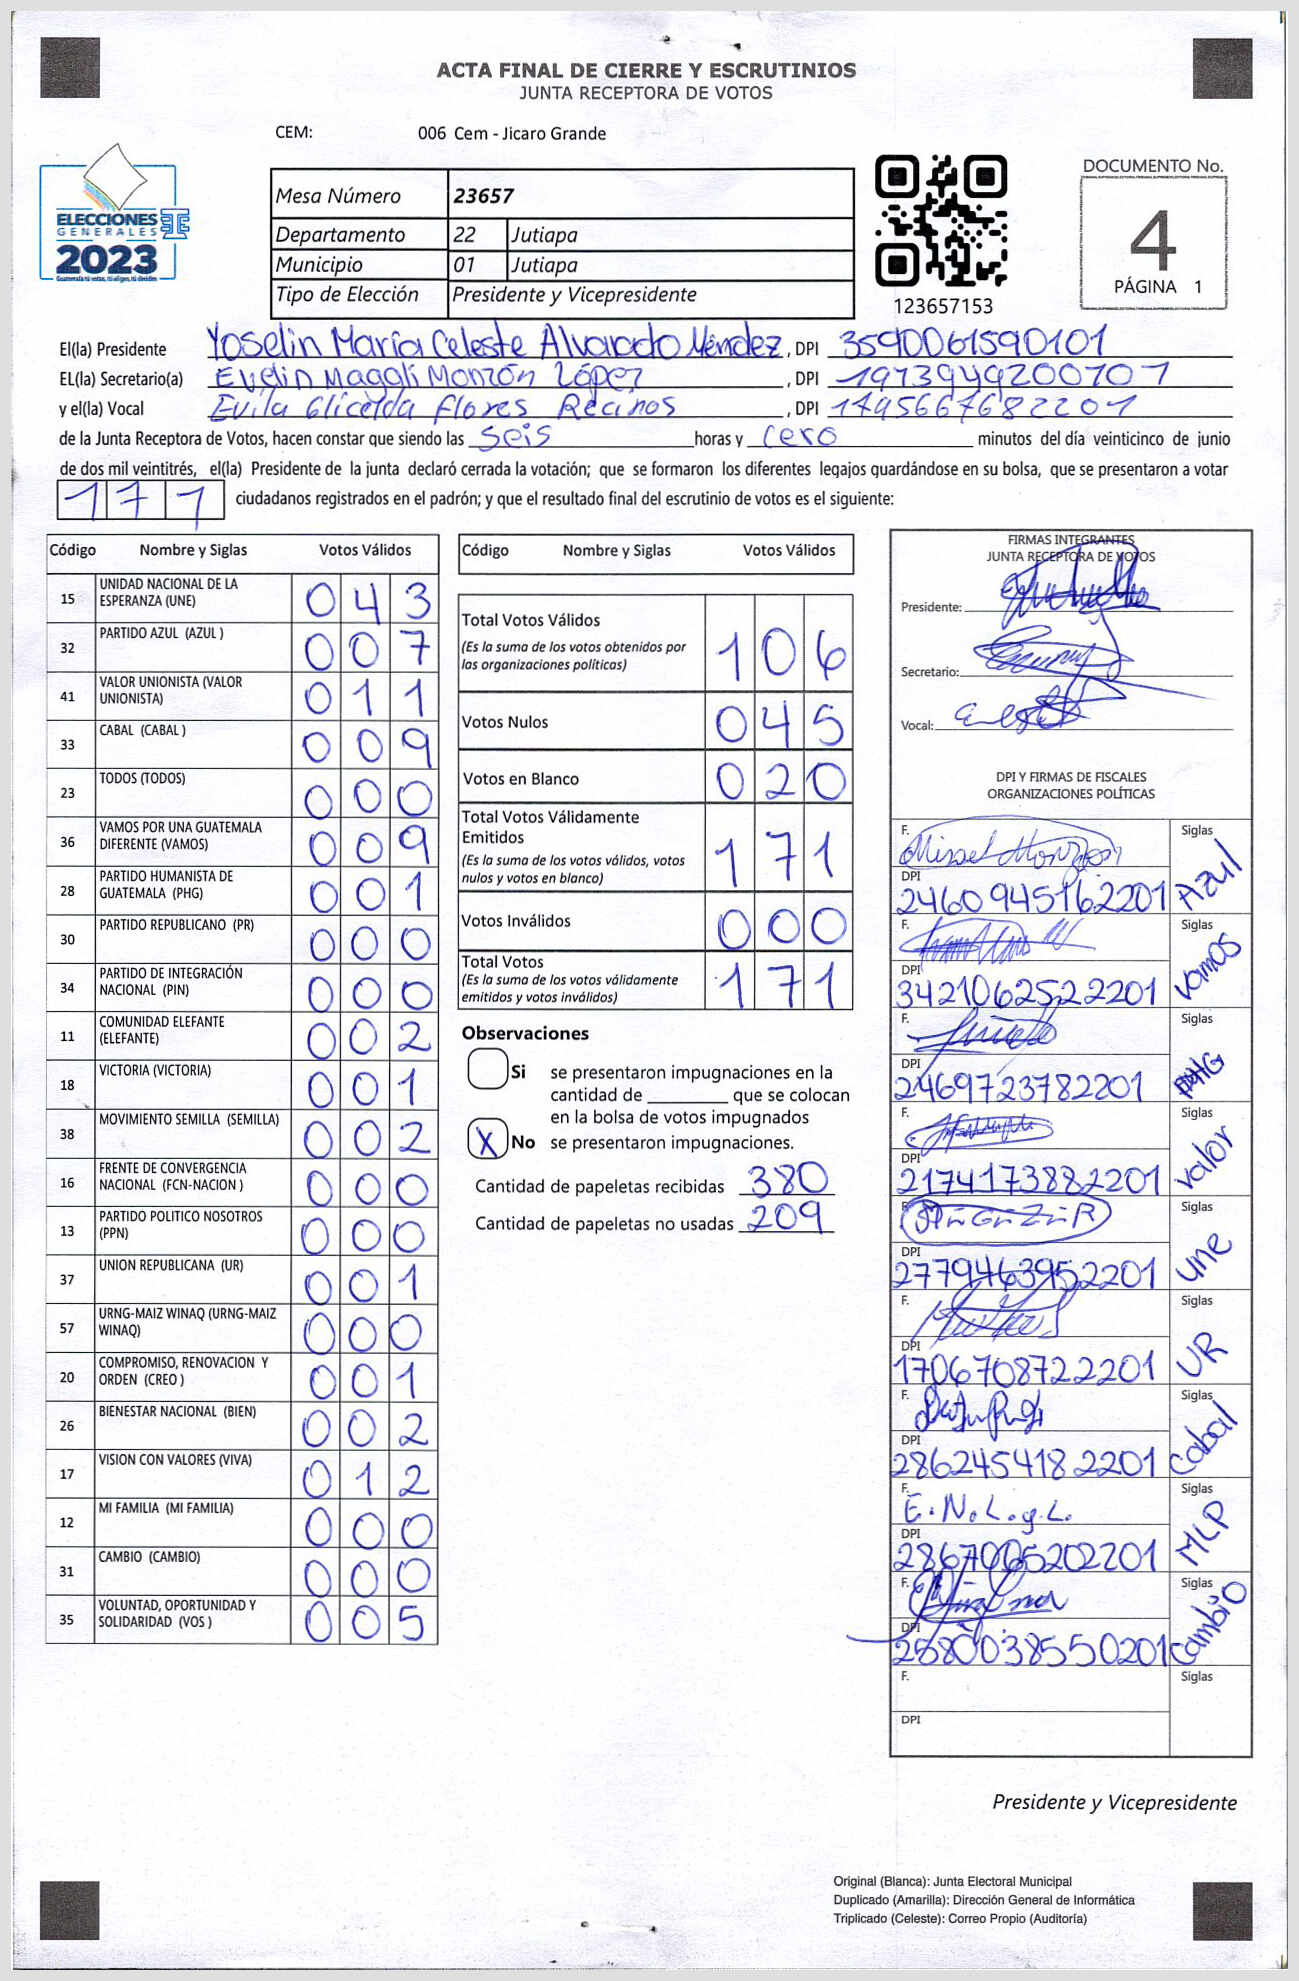 ACTA FINAL DE CIERRE Y ESCRUTINIOS
JUNTA RECEPTORA DE VOTOS
CEM: 006 Cem - Jicaro Grande
ELECCIONES
GENERALES
2023
Mesa Número 23657
Departamento 22 Jutiapa
Municipio 01 Jutiapa
Tipo de Elección Presidente y Vicepresidente
123657153
DOCUMENTO No.
4
PÁGINA 1
El(la) Presidente Yoselin María Celeste Alvarado Méndez, DPI 3590061590101
EL(la) Secretario(a) Evelin Magalí Monzón López, DPI 1973949200101
y el(la) Vocal Evila Glicelda Flores Recinos, DPI 1795667682201
de la Junta Receptora de Votos, hacen constar que siendo las seis horas y cero minutos del día veinticinco de junio
de dos mil veintitrés, el(la) Presidente de la junta declaró cerrada la votación; que se formaron los diferentes legajos guardándose en su bolsa, que se presentaron a votar
171 ciudadanos registrados en el padrón; y que el resultado final del escrutinio de votos es el siguiente:
Código Nombre y Siglas Votos Válidos
15 UNIDAD NACIONAL DE LA ESPERANZA (UNE) 043
32 PARTIDO AZUL (AZUL ) 007
41 VALOR UNIONISTA (VALOR UNIONISTA) 011
33 CABAL (CABAL ) 009
23 TODOS (TODOS) 000
36 VAMOS POR UNA GUATEMALA DIFERENTE (VAMOS) 009
28 PARTIDO HUMANISTA DE GUATEMALA (PHG) 001
30 PARTIDO REPUBLICANO (PR) 000
34 PARTIDO DE INTEGRACIÓN NACIONAL (PIN) 000
11 COMUNIDAD ELEFANTE (ELEFANTE) 002
18 VICTORIA (VICTORIA) 001
38 MOVIMIENTO SEMILLA (SEMILLA) 002
16 FRENTE DE CONVERGENCIA NACIONAL (FCN-NACION ) 000
13 PARTIDO POLITICO NOSOTROS (PPN) 000
37 UNION REPUBLICANA (UR) 001
57 URNG-MAIZ WINAQ (URNG-MAIZ WINAQ) 000
20 COMPROMISO, RENOVACION Y ORDEN (CREO ) 001
26 BIENESTAR NACIONAL (BIEN) 002
17 VISION CON VALORES (VIVA) 012
12 MI FAMILIA (MI FAMILIA) 000
31 CAMBIO (CAMBIO) 000
35 VOLUNTAD, OPORTUNIDAD Y SOLIDARIDAD (VOS ) 005
Código Nombre y Siglas Votos Válidos
Total Votos Válidos 106
(Es la suma de los votos obtenidos por
las organizaciones políticas)
Votos Nulos 045
Votos en Blanco 020
Total Votos Válidamente
Emitidos 171
(Es la suma de los votos válidos, votos
nulos y votos en blanco)
Votos Inválidos 000
Total Votos 171
(Es la suma de los votos válidamente
emitidos y votos inválidos)
Observaciones
Si se presentaron impugnaciones en la
cantidad de ________ que se colocan
en la bolsa de votos impugnados
X No se presentaron impugnaciones.
Cantidad de papeletas recibidas 380
Cantidad de papeletas no usadas 209
FIRMAS INTEGRANTES
JUNTA RECEPTORA DE VOTOS
Presidente:
Secretario:
Vocal:
DPI Y FIRMAS DE FISCALES
ORGANIZACIONES POLÍTICAS
F. Siglas
DPI 2460945162201 Azul
F. Siglas
DPI 3421062522201 Vamos
F. Siglas
DPI 2469723782201 PHG
F. Siglas
DPI 2174173882201 Valor
F. Siglas
DPI 2779463952201 Une
F. Siglas
DPI 1706708722201 UR
F. Siglas
DPI 2862454182201 Cabal
F. E.N.L.y.L. Siglas
DPI 2867005202201 MLP
F. Siglas
DPI 2580038550201 Cambio
F. Siglas
DPI
Presidente y Vicepresidente
Original (Blanca): Junta Electoral Municipal
Duplicado (Amarilla): Dirección General de Informática
Triplicado (Celeste): Correo Propio (Auditoría)